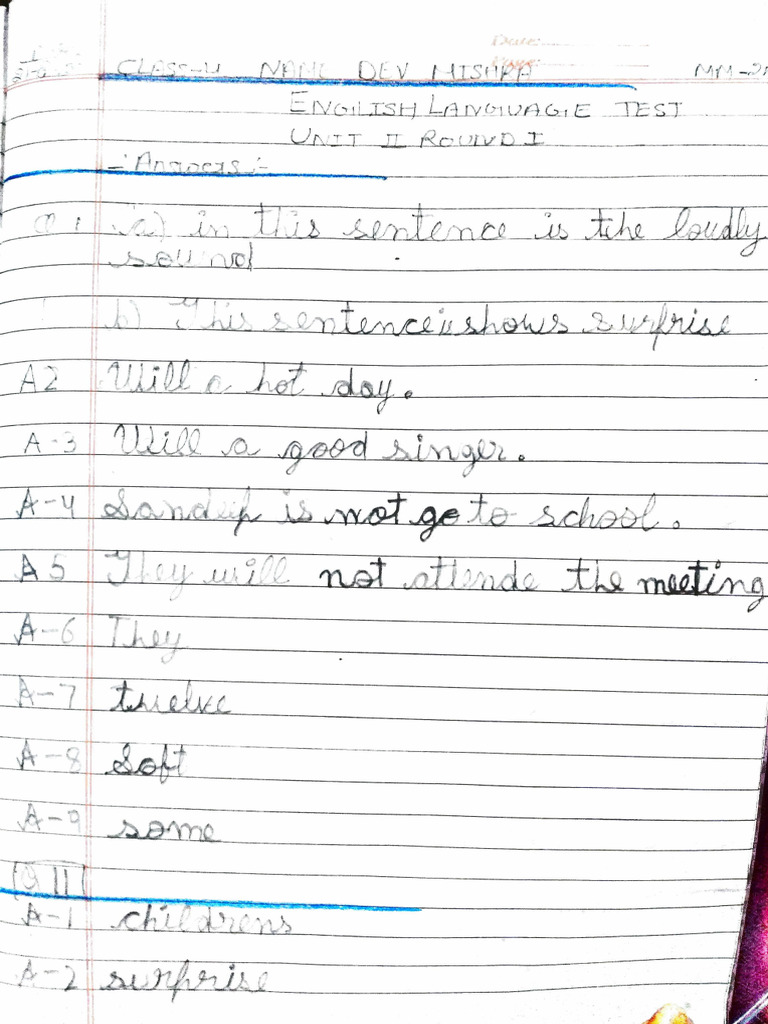 Date:
CLASS-4 NAME DEV MISHRA MM-2
ENGILISH LANGUAGE TEST
UNIT II ROUND I
-: Answers :-
Q 1 a) in this sentence is the loudly
sound
b) This sentence is shows surprise
A2 Will a hot day.
A-3 Will a good singer.
A-4 Sandeep is not go to school.
A5 They will not attende the meeting
A-6 They
A-7 twelve
A-8 Soft
A-9 some
Q II
A-1 childrens
A-2 surprise